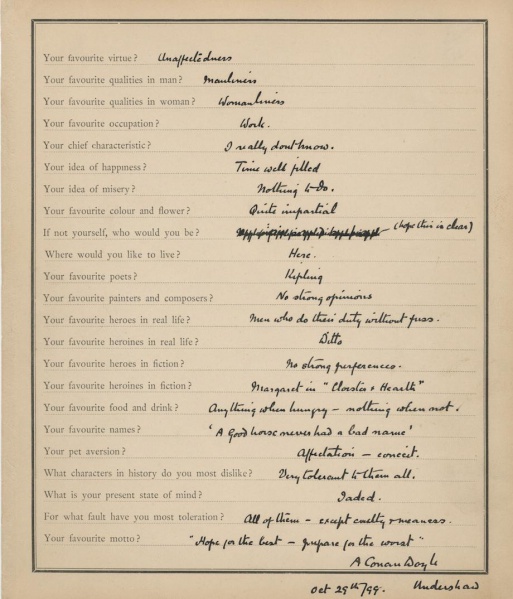 Your favourite virtue? Unaffectedness
Your favourite qualities in man? Manliness
Your favourite qualities in woman? Womanliness
Your favourite occupation? Work.
Your chief characteristic? I really dont know.
Your idea of happiness? Time well filled
Your idea of misery? Nothing to do.
Your favourite colour and flower? Quite impartial
If not yourself, who would you be? (hope this is clear)
Where would you like to live? Here.
Your favourite poets? Kipling
Your favourite painters and composers? No strong opinions
Your favourite heroes in real life? Men who do their duty without fuss.
Your favourite heroines in real life? Ditto
Your favourite heroes in fiction? No strong preferences.
Your favourite heroines in fiction? Margaret in "Cloister & Hearth"
Your favourite food and drink? Anything when hungry – nothing when not.
Your favourite names? 'A Good horse never had a bad name'
Your pet aversion? Affectation – conceit.
What characters in history do you most dislike? Very tolerant to them all.
What is your present state of mind? Jaded.
For what fault have you most toleration? All of them – except cruelty & meanness.
Your favourite motto? "Hope for the best – prepare for the worst"
A Conan Doyle
Oct 29th/99. Undershaw